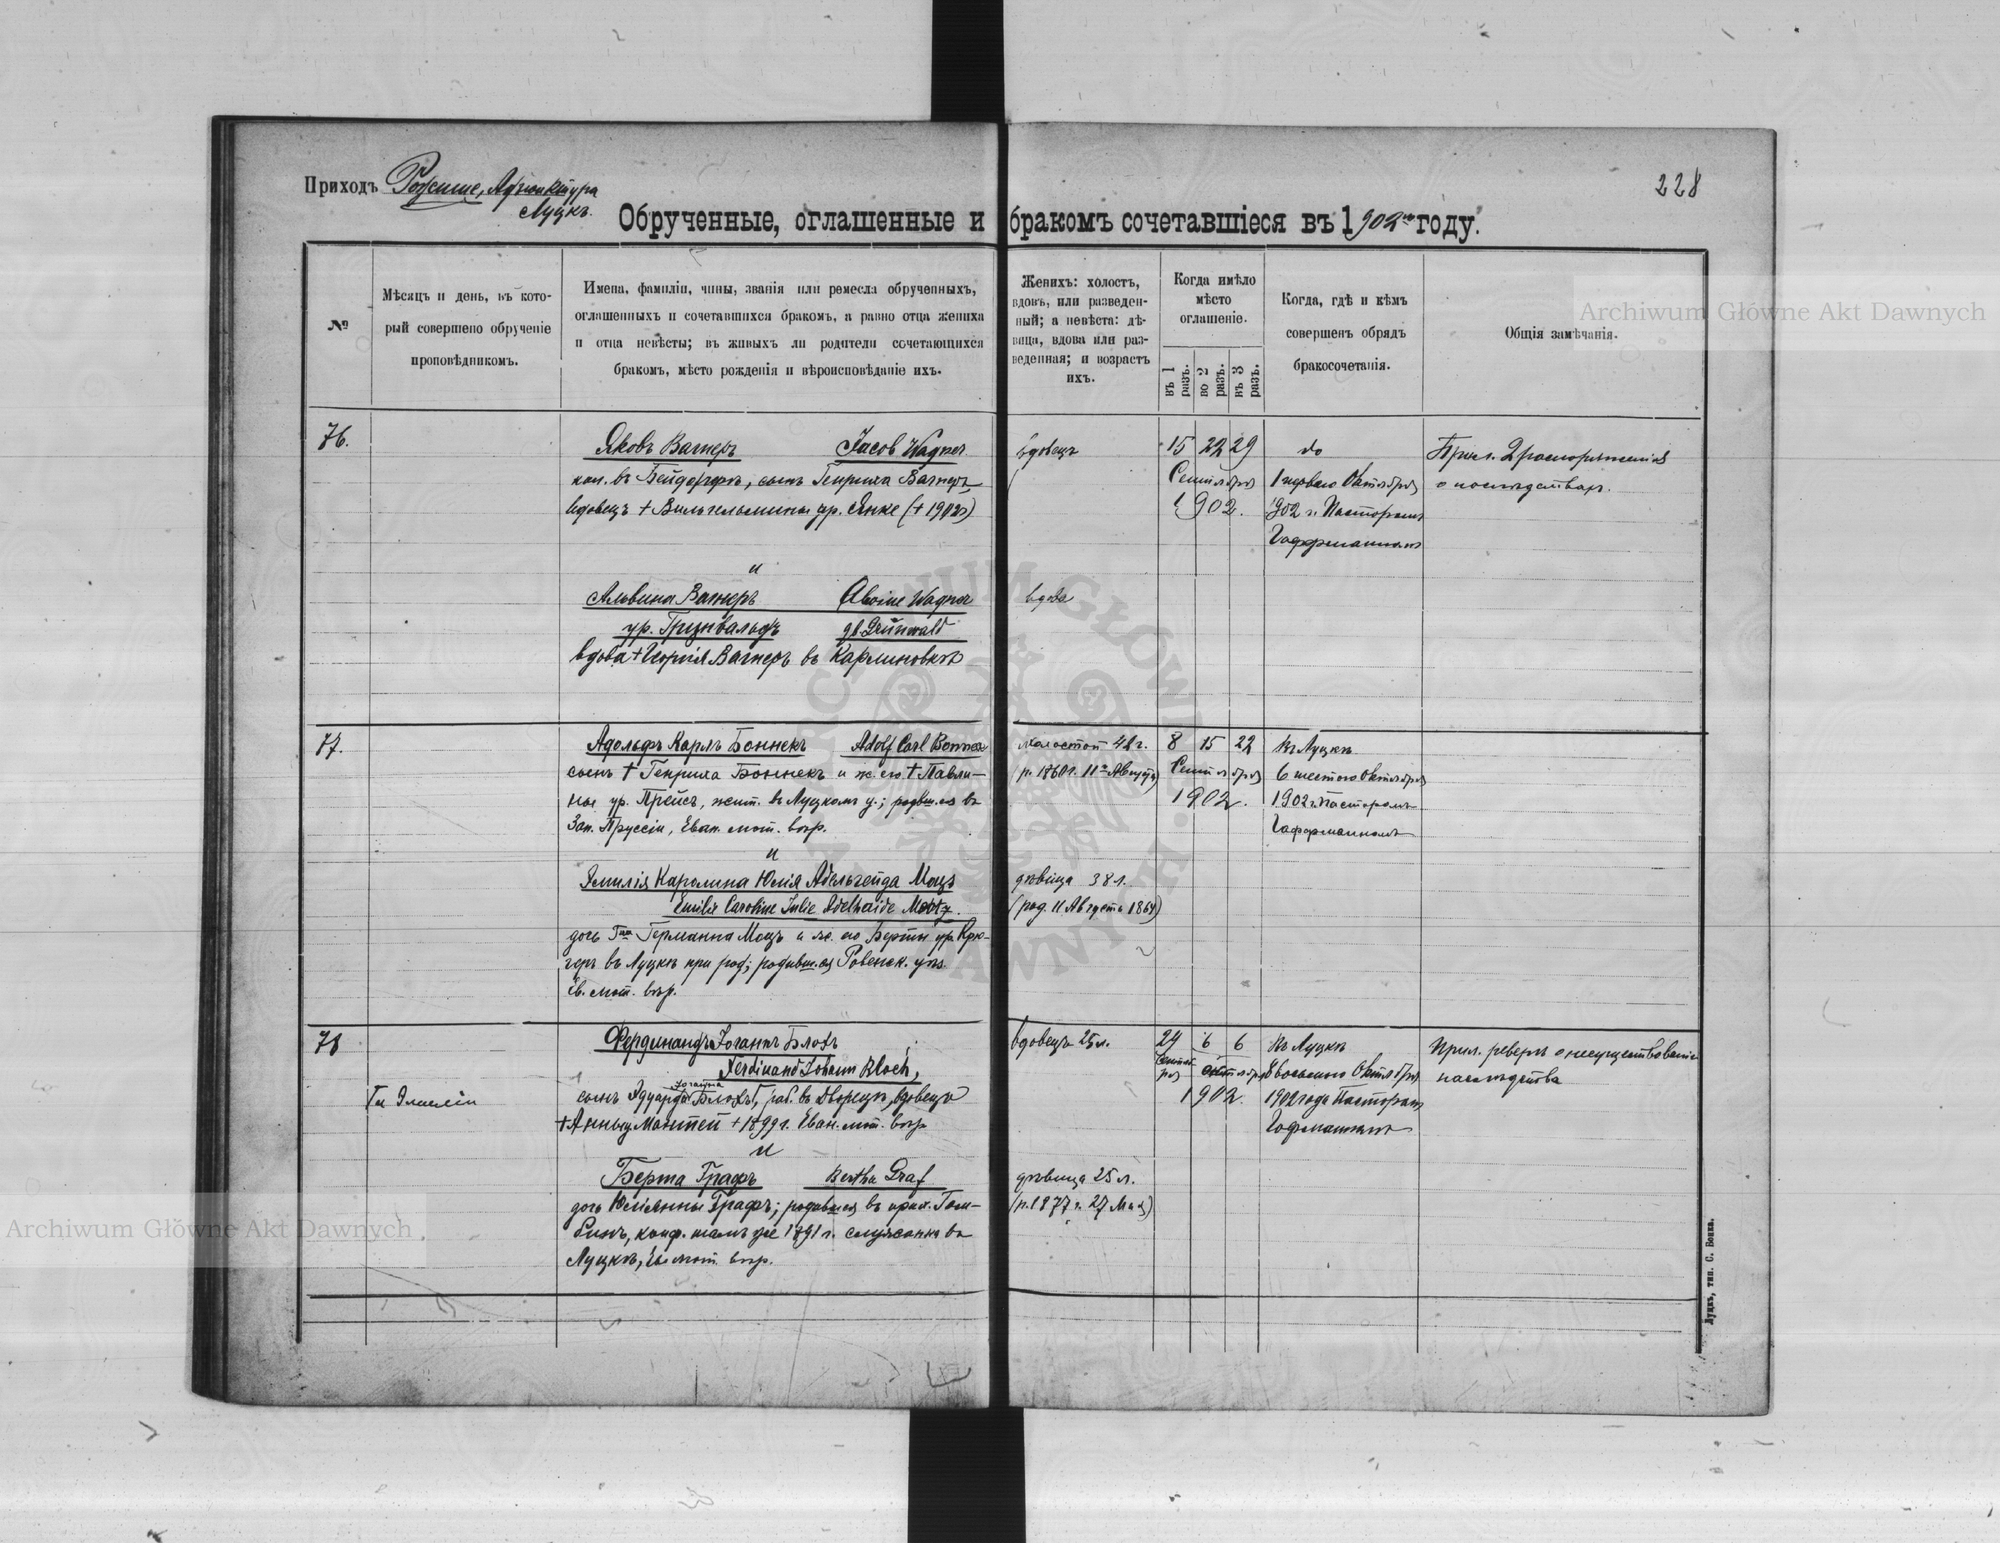 Приходъ Рожище, Адъюнктура
Луцкъ.
228
Обрученные, оглашенные и бракомъ сочетавшіеся въ 1902мъ году.
№
Мѣсяцъ и день, въ кото-
рый совершено обрученіе
проповѣдникомъ.
Имена, фамиліи, чины, званія или ремесла обрученныхъ,
оглашенныхъ и сочетавшихся бракомъ, а равно отца жениха
и отца невѣсты; въ живыхъ ли родители сочетающихся
бракомъ, мѣсто рожденія и вѣроисповѣданіе ихъ.
Женихъ: холостъ,
вдовъ, или разведен-
ный; а невѣста: дѣ-
вица, вдова или раз-
веденная; и возрастъ
ихъ.
Когда имѣло
мѣсто
оглашеніе.
въ 1 разъ.
во 2 разъ.
въ 3 разъ.
Когда, гдѣ и кѣмъ
совершенъ обрядъ
бракосочетанія.
Общія замѣчанія.
Archiwum Główne Akt Dawnych
76.
Яковъ Вагнеръ Jacob Wagner
кол. въ , сынъ Генриха Вагнеръ,
вдовецъ † Вильгельмины ур. Янке († 1902)
и
Альвина Вагнеръ Alwine Wagner
ур. Гринвальдъ gb. Grünwald
вдова † Георгія Вагнеръ въ Карлиновкѣ
вдовецъ
вдова
15 22 29
Сентября
1902.
do
1 перваго Октября
1902 г. Пасторомъ
Гаффманномъ
Прил. 2 распоряженія
о
77.
Адольфъ Карлъ Боннекъ Adolf Carl Bonnek
сынъ † Генриха Боннекъ и ж. его † Павли-
ны ур. Прейсъ, жит. въ Луцкомъ у.; родвш.ся въ
Зап. Пруссіи, Еван. лют. вѣр.
и
Эмилія Каролина Юлія Адельгейда Моцъ
Emilie Caroline Julie Adelheide Motz.
дочь Германна Моцъ и ж. его Берты ур. Крю-
геръ въ Луцкѣ при род; родивш.ся Ровенск. уѣз.
Ев. лют. вѣр.
холостой 42 г.
(р. 1860 г. 11го Августа)
дѣвица 38 л.
(род. 11 Августа 1864)
8 15 22
Сентября
1902.
Въ Луцкѣ
6 шестого Октября
1902 г. Пасторомъ
Гаффманномъ
78
Фердинандъ Іоганнъ Блохъ
Ferdinand Johann Bloch,
Іоганна
сынъ Эдуарда Блохъ, раб. въ Дворецѣ, вдовецъ
† Анны Мантей † 1899 г. Еван. лют. вѣр.
и
Берта Графъ Bertha Graf
дочь Юліанны Графъ; родивш.ся въ прих. Гом-
бинъ, конф. тамъ же 1891 г. служанка въ
Луцкѣ, Ев. лют. вѣр.
вдовецъ 25 л.
дѣвица 25 л.
(р. 1877 г. 27 Мая)
29 6 6
Сентября Октября
1902.
Въ Луцкѣ
8 восьмого Октября
1902 года Пасторомъ
Гафманномъ
Прил. реверсъ о несуществованіи
наслѣдства
Archiwum Główne Akt Dawnych
ARCHIWUM GŁÓWNE AKT DAWNYCH
Луцкъ, тип. С. Бокка.